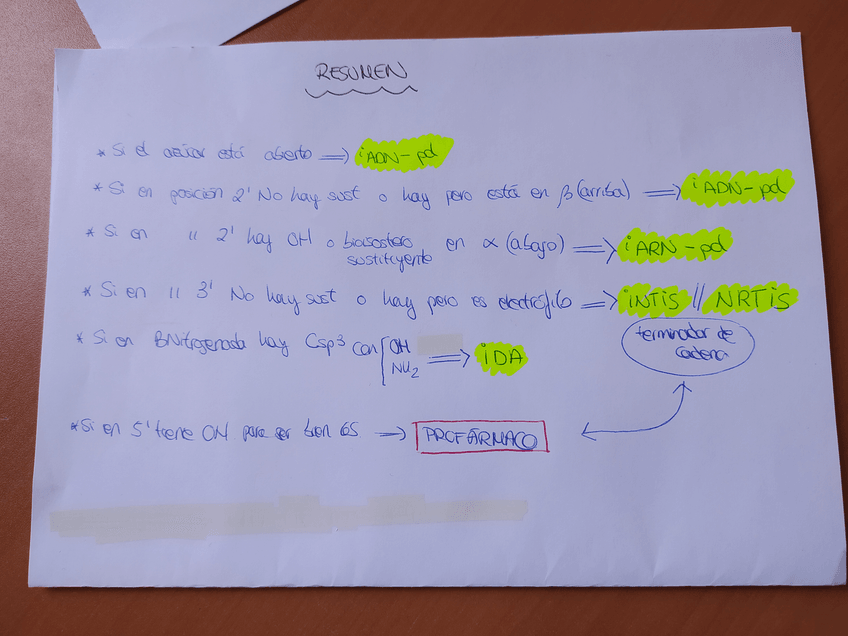 RESUMEN
* Si el azúcar está abierto => iADN-pd
* Si en posición 2' No hay sust o hay pero está en β (arriba) => iADN-pd
* Si en " 2' hay OH o bioisostero sustituyente en α (abajo) => iARN-pd
* Si en " 3' No hay sust o hay pero es electrófilo => iNTiS // NRTiS
terminador de cadena
* Si en BNitrogenada hay Csp³ con [OH NH₂ => iDA
* Si en 5' tiene OH para ser bien => PROFÁRMACO